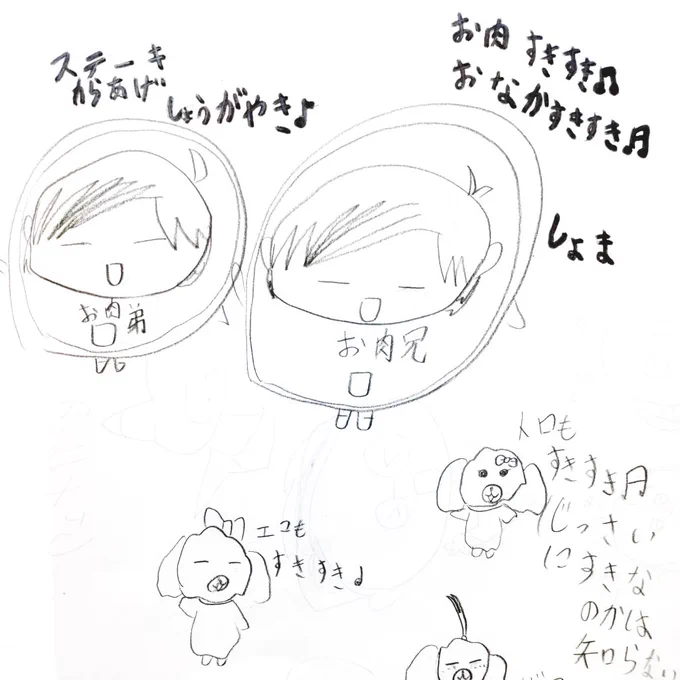 お肉 すきすき♫
おなかすきすき♬
ステーキ
からあげ
しょうがやき♪
しょま
お肉弟
お肉兄
トロも
すきすき♬
じっさい
にすきな
のかは
知らない
エコも
すきすき♪